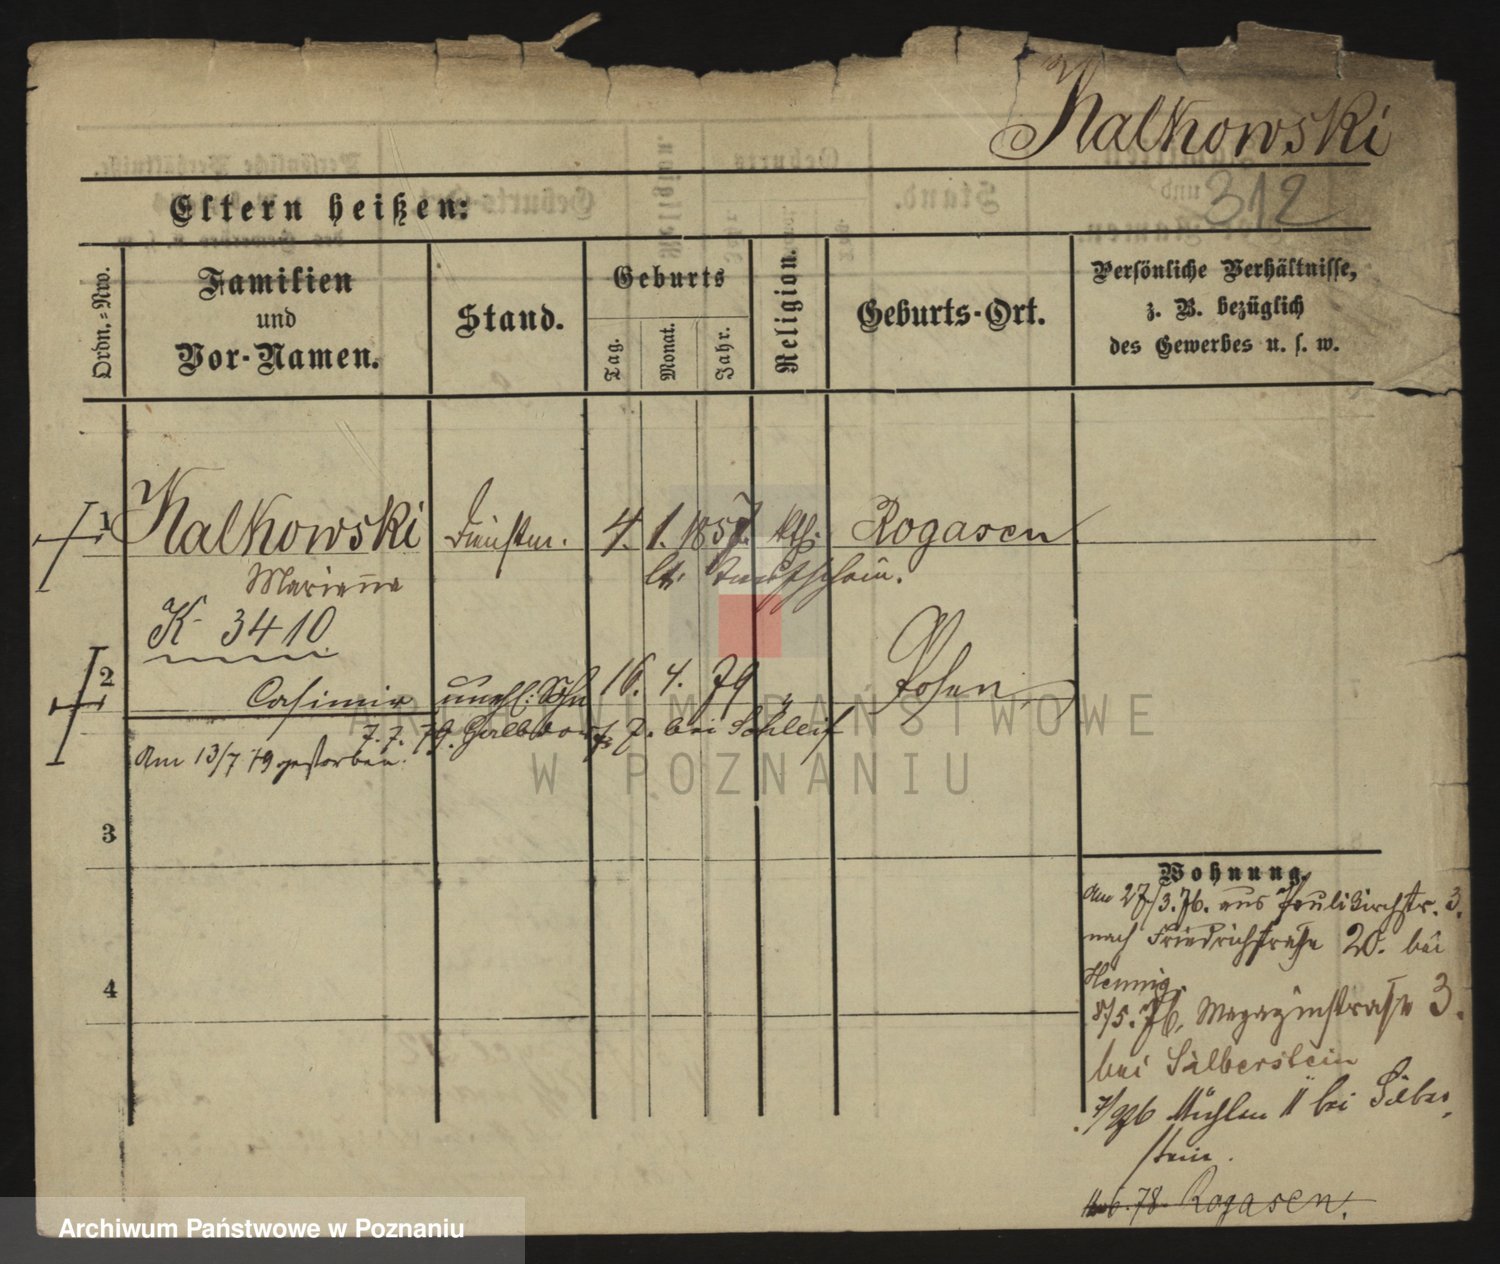 Kalkowski
312
Eltern heißen:
Ordn.-Nro.
Familien
und
Vor-Namen.
Stand.
Geburts
Tag.
Monat.
Jahr.
Religion.
Geburts-Ort.
Persönliche Verhältnisse,
z. B. bezüglich
des Gewerbes u. s. w.
1 Kalkowski 4. 1. 1857. kth. Rogasen
Marianna
lt. Taufschein.
K 3410
2 Casimir unehl: Sohn 16. 4. 79 " Posen
7. 7. 79. Gerberstr 7. bei Schleif
Am 13/7 79 gestorben.
3
4
Wohnung.
Am 27/3.76. aus Paulikirchstr. 3.
nach Friedrichstraße 20. bei
Hennig.
8/5. 76, Magazinstraße 3.
bei Silberstein
7/9 76 Mühlen 11 bei Silber
stein.
78. Rogasen.
ARCHIWUM PAŃSTWOWE
W POZNANIU
Archiwum Państwowe w Poznaniu